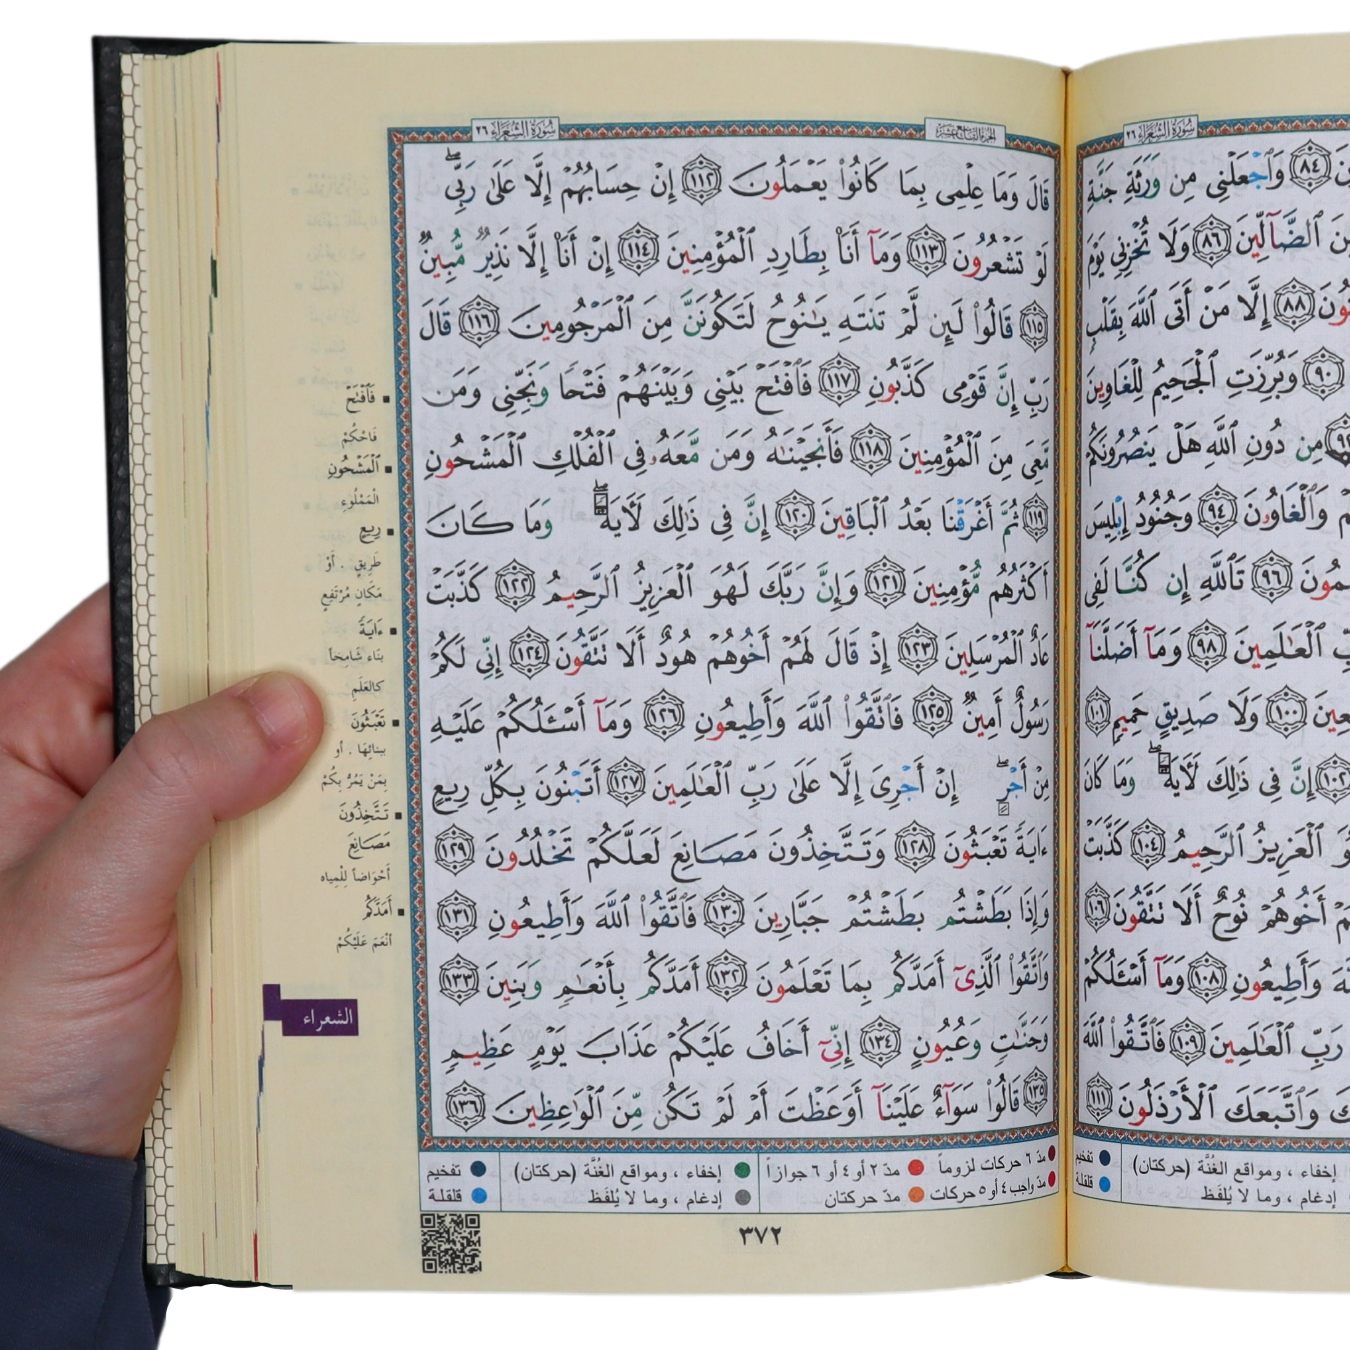 سُورَةُ الشُّعَرَاءِ ٢٦
٨٤ وَٱجْعَلْنِى مِن وَرَثَةِ جَنَّةِ
ٱلضَّآلِّينَ ٨٦ وَلَا تُخْزِنِى يَوْمَ
٨٨ إِلَّا مَنْ أَتَى ٱللَّهَ بِقَلْبٍ
٩٠ وَبُرِّزَتِ ٱلْجَحِيمُ لِلْغَاوِينَ
مِن دُونِ ٱللَّهِ هَلْ يَنصُرُونَكُمْ
وَٱلْغَاوُۥنَ ٩٤ وَجُنُودُ إِبْلِيسَ
٩٦ تَٱللَّهِ إِن كُنَّا لَفِى
ٱلْعَٰلَمِينَ ٩٨ وَمَآ أَضَلَّنَآ
١٠٠ وَلَا صَدِيقٍ حَمِيمٍ ١٠١
١٠٢ إِنَّ فِى ذَٰلِكَ لَءَايَةً ۖ وَمَا كَانَ
ٱلْعَزِيزُ ٱلرَّحِيمُ ١٠٤ كَذَّبَتْ
أَخُوهُمْ نُوحٌ أَلَا تَتَّقُونَ ١٠٦
وَأَطِيعُونِ ١٠٨ وَمَآ أَسْـَٔلُكُمْ
رَبِّ ٱلْعَٰلَمِينَ ١٠٩ فَٱتَّقُوا۟ ٱللَّهَ
وَٱتَّبَعَكَ ٱلْأَرْذَلُونَ ١١١
إخفاء ، ومواقع الغُنَّة (حركتان) تفخيم
إدغام ، وما لا يُلفَظ قلقلة
الجزء التاسع عشر سُورَةُ الشُّعَرَاءِ ٢٦
قَالَ وَمَا عِلْمِى بِمَا كَانُوا۟ يَعْمَلُونَ ١١٢ إِنْ حِسَابُهُمْ إِلَّا عَلَىٰ رَبِّى ۖ
لَوْ تَشْعُرُونَ ١١٣ وَمَآ أَنَا۠ بِطَارِدِ ٱلْمُؤْمِنِينَ ١١٤ إِنْ أَنَا۠ إِلَّا نَذِيرٌ مُّبِينٌ
١١٥ قَالُوا۟ لَئِن لَّمْ تَنتَهِ يَٰنُوحُ لَتَكُونَنَّ مِنَ ٱلْمَرْجُومِينَ ١١٦ قَالَ
رَبِّ إِنَّ قَوْمِى كَذَّبُونِ ١١٧ فَٱفْتَحْ بَيْنِى وَبَيْنَهُمْ فَتْحًا وَنَجِّنِى وَمَن
مَّعِىَ مِنَ ٱلْمُؤْمِنِينَ ١١٨ فَأَنجَيْنَٰهُ وَمَن مَّعَهُۥ فِى ٱلْفُلْكِ ٱلْمَشْحُونِ
١١٩ ثُمَّ أَغْرَقْنَا بَعْدُ ٱلْبَاقِينَ ١٢٠ إِنَّ فِى ذَٰلِكَ لَءَايَةً ۖ وَمَا كَانَ
أَكْثَرُهُم مُّؤْمِنِينَ ١٢١ وَإِنَّ رَبَّكَ لَهُوَ ٱلْعَزِيزُ ٱلرَّحِيمُ ١٢٢ كَذَّبَتْ
عَادٌ ٱلْمُرْسَلِينَ ١٢٣ إِذْ قَالَ لَهُمْ أَخُوهُمْ هُودٌ أَلَا تَتَّقُونَ ١٢٤ إِنِّى لَكُمْ
رَسُولٌ أَمِينٌ ١٢٥ فَٱتَّقُوا۟ ٱللَّهَ وَأَطِيعُونِ ١٢٦ وَمَآ أَسْـَٔلُكُمْ عَلَيْهِ
مِنْ أَجْرٍ ۖ إِنْ أَجْرِىَ إِلَّا عَلَىٰ رَبِّ ٱلْعَٰلَمِينَ ١٢٧ أَتَبْنُونَ بِكُلِّ رِيعٍ
ءَايَةً تَعْبَثُونَ ١٢٨ وَتَتَّخِذُونَ مَصَانِعَ لَعَلَّكُمْ تَخْلُدُونَ ١٢٩
وَإِذَا بَطَشْتُم بَطَشْتُمْ جَبَّارِينَ ١٣٠ فَٱتَّقُوا۟ ٱللَّهَ وَأَطِيعُونِ ١٣١
وَٱتَّقُوا۟ ٱلَّذِىٓ أَمَدَّكُم بِمَا تَعْلَمُونَ ١٣٢ أَمَدَّكُم بِأَنْعَٰمٍ وَبَنِينَ ١٣٣
وَجَنَّٰتٍ وَعُيُونٍ ١٣٤ إِنِّىٓ أَخَافُ عَلَيْكُمْ عَذَابَ يَوْمٍ عَظِيمٍ
١٣٥ قَالُوا۟ سَوَآءٌ عَلَيْنَآ أَوَعَظْتَ أَمْ لَمْ تَكُن مِّنَ ٱلْوَٰعِظِينَ ١٣٦
فَٱفْتَحْ
فَاحْكُمْ
ٱلْمَشْحُونِ
الْمَمْلُوءِ
رِيعٍ
طَرِيقٍ . أَوْ
مَكَانٍ مُرْتَفِعٍ
ءَايَةً
بِنَاء شَامِخاً
كالعَلَمِ
تَعْبَثُونَ
ببنائِهَا . أو
بِمَنْ يَمُرُّ بِكُمْ
تَتَّخِذُونَ
مَصَانِعَ
أَحْوَاضاً لِلْمِياه
أَمَدَّكُم
أنْعَمَ عَلَيْكُمْ
الشعراء
مدّ ٦ حركات لزوماً مدّ ٢ أو ٤ أو ٦ جوازاً إخفاء ، ومواقع الغُنَّة (حركتان) تفخيم
مدّ واجب ٤ أو ٥ حركات مدّ حركتان إدغام ، وما لا يُلفَظ قلقلة
٣٧٢